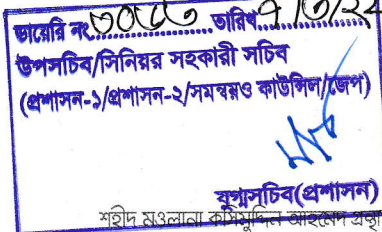 ডায়েরি নং ৩০৮৩ তারিখ ৭/৩/২৪
উপসচিব/সিনিয়র সহকারী সচিব
(প্রশাসন-১/প্রশাসন-২/সমন্বয়ও কাউন্সিল/জেপ)
যুগ্মসচিব(প্রশাসন)
শহীদ মওলানা কসিমুদ্দিন আহমেদ